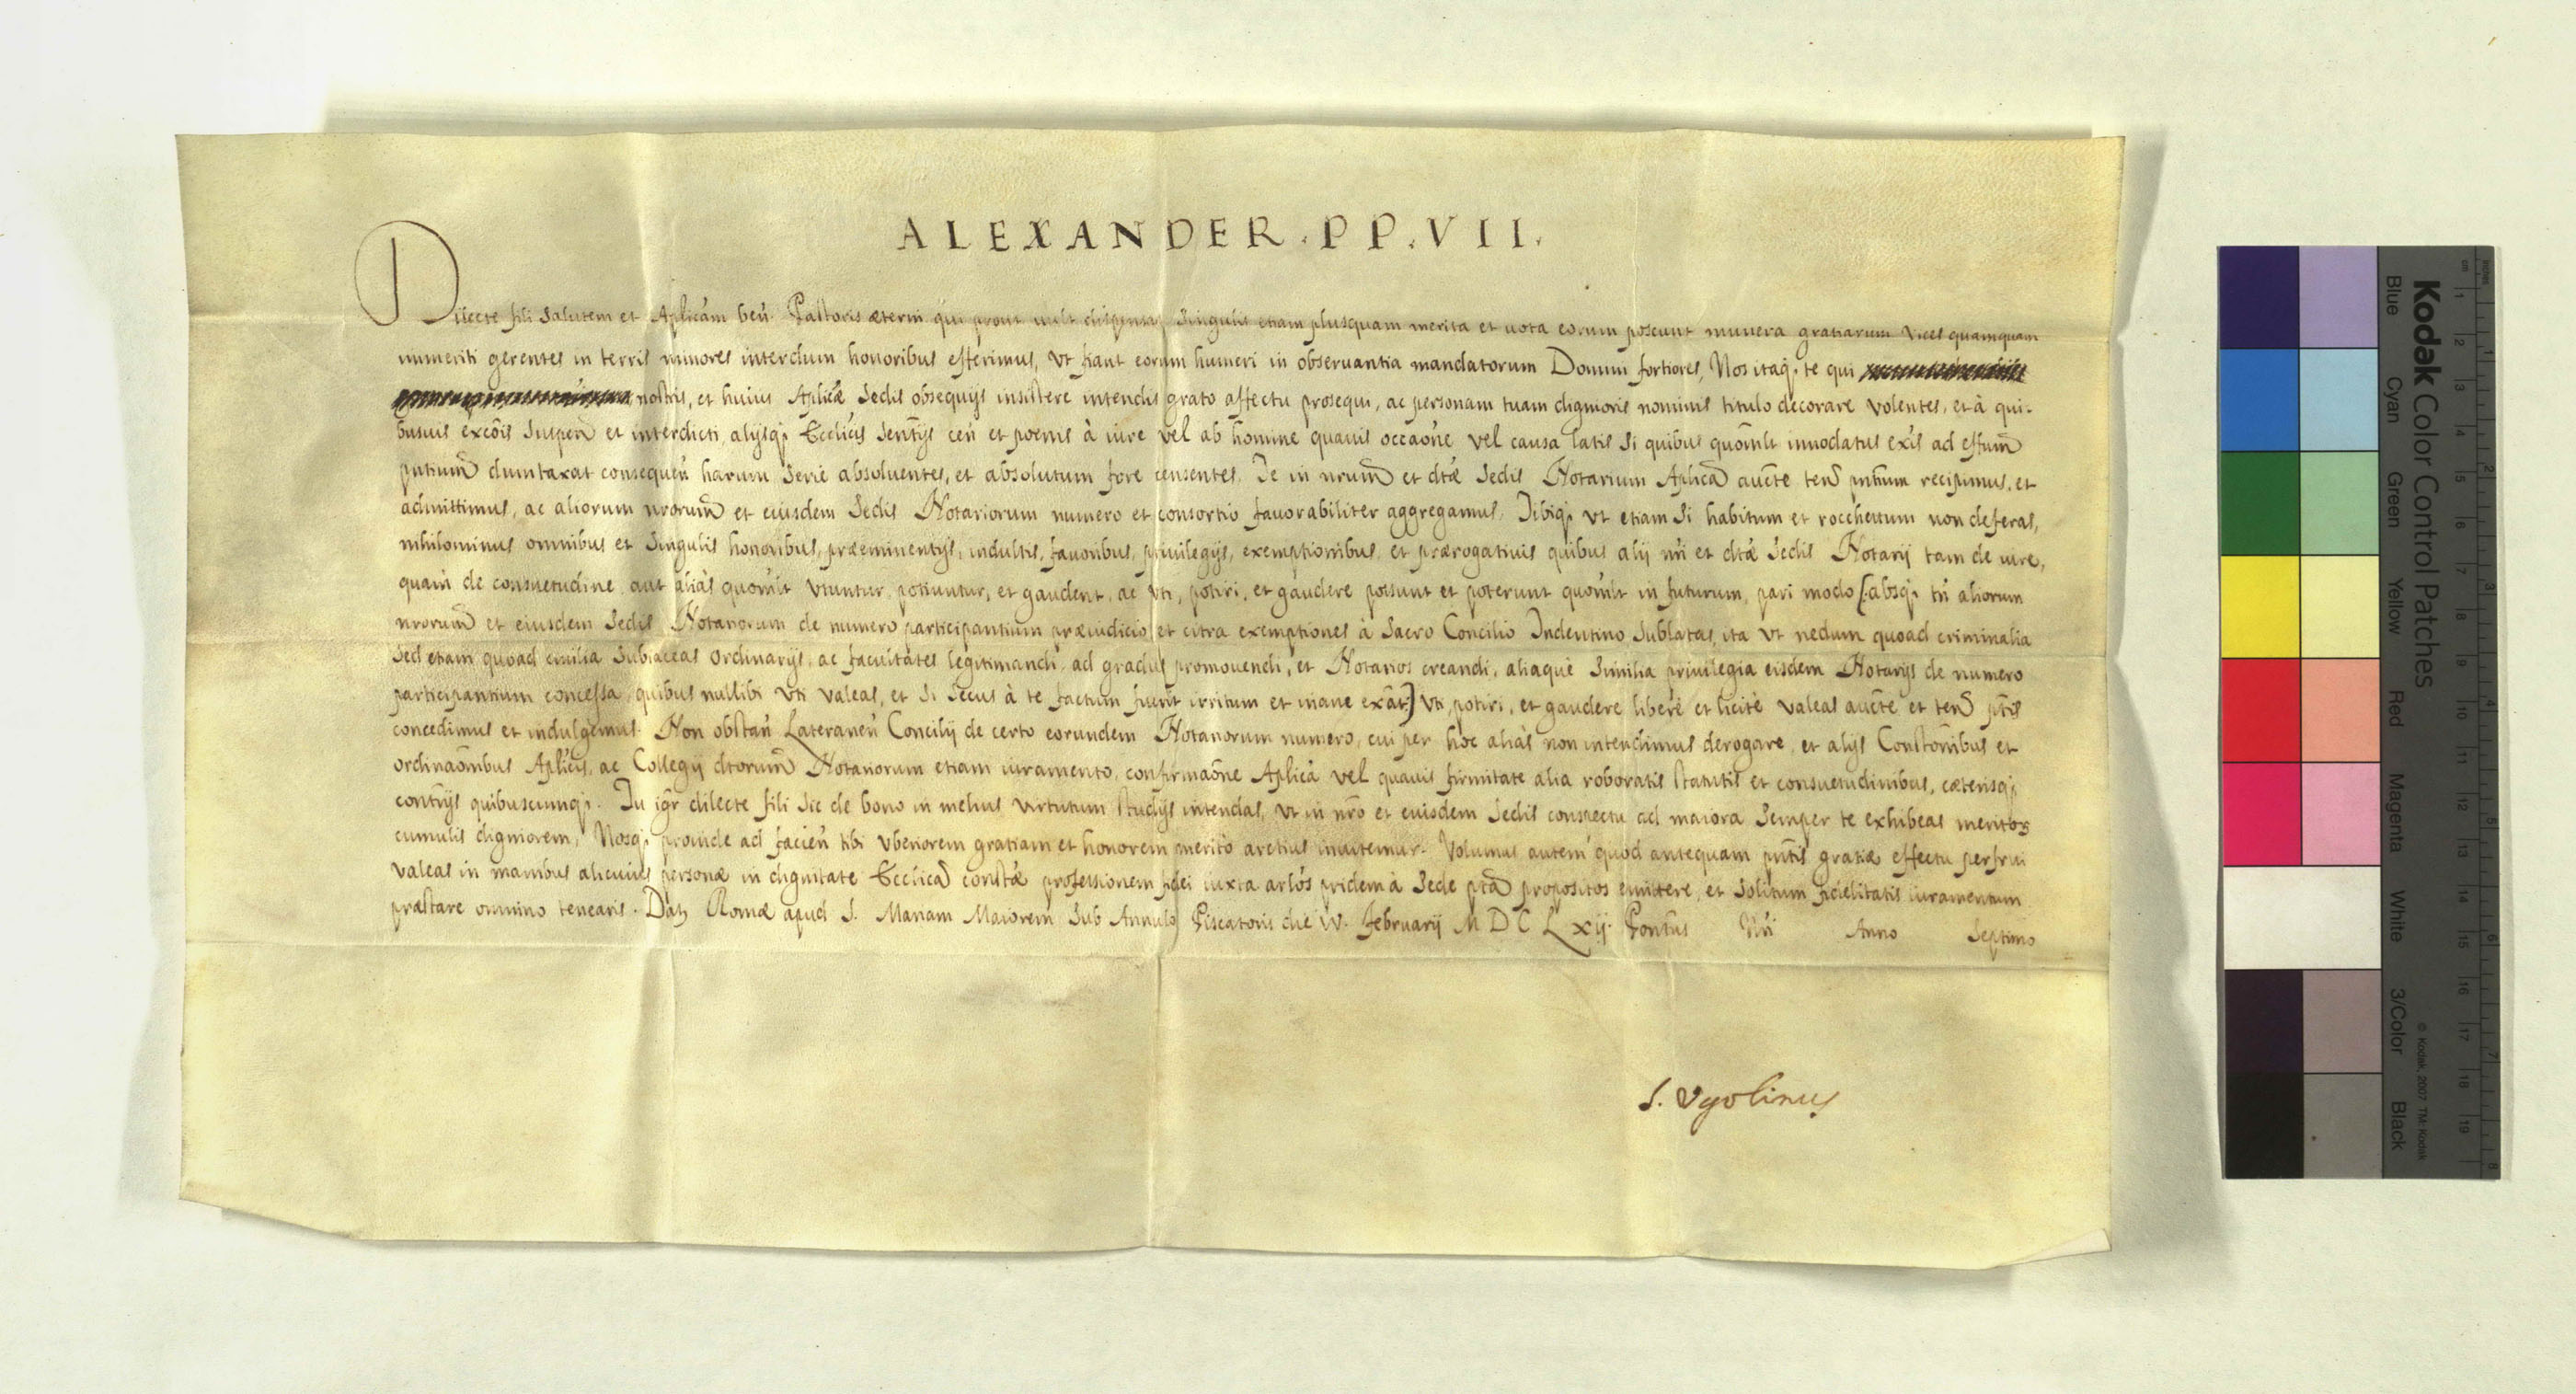 ALEXANDER . PP . VII .
Dilecte fili salutem et Aplicam ben. Pastoris æterni qui prout vult dispensat singulis etiam plusquam merita et uota eorum poscunt munera gratiarum vices quamquam
immeriti gerentes in terris minores interdum honoribus efferimus, Vt fiant eorum humeri in obseruantia mandatorum Domini fortiores, Nos itaq; te qui
nostris, et huius Aplicæ Sedis obsequijs insistere intendis grato affectu prosequi, ac personam tuam dignioris nominis titulo decorare volentes, et à qui-
busuis excõis suspen et interdicti, alijsq; Ecclicis sentijs cen et poenis à iure vel ab homine quauis occaõne vel causa latis si quibus quomlt innodatus exis ad effum
pntium dumtaxat consequen harum serie absoluentes, et absolutum fore censentes, Te in nrum et dtæ Sedis Notarium Aplica aucte ten pntium recipimus, et
admittimus, ac aliorum nrorum et eiusdem Sedis Notariorum numero et consortio fauorabiliter aggregamus, Tibiq; vt etiam si habitum et rocchettum non deferas,
nihilominus omnibus et singulis honoribus, præeminentijs, indultis, fauoribus, priuilegijs, exemptionibus et prærogatiuis quibus alij nri et dtæ Sedis Notarij tam de iure,
quam de consuetudine aut aliàs quomlt vtuntur, potiuntur, et gaudent, ac vti, potiri, et gaudere possunt et poterunt quomlt in futurum, pari modo (absq; tn aliorum
nrorum et eiusdem Sedis Notariorum de numero participantium præiudicio et citra exemptiones à Sacro Concilio Tridentino sublatas, ita vt nedum quoad criminalia
sed etiam quoad ciuilia subiaceas Ordinarijs, ac facultates legitimandi, ad gradus promouendi, et Notarios creandi, aliaque similia priuilegia eisdem Notarijs de numero
participantium concessa, quibus nullibi vti valeas, et si secus à te factum fuerit irritum et inane exãt) vti, potiri, et gaudere liberè et licitè valeas aucte et ten pntis
concedimus et indulgemus. Non obstan Lateranen Concilij de certo eorundem Notariorum numero, cui per hoc aliàs non intendimus derogare, et alijs Constõnibus et
ordinaõnibus Aplicis, ac Collegij dtorum Notariorum etiam iuramento, confirmaõne Aplica vel quauis firmitate alia roboratis statutis et consuetudinibus, cæterisq;
contrijs quibuscumq;. Tu igr dilecte fili sic de bono in melius virtutum studijs intendas, vt in nro et eiusdem Sedis conspectu ad maiora semper te exhibeas meritor
cumulis digniorem, Nosq; proinde ad facien tibi vberiorem gratiam et honorem meritò arctius inuitemur. Volumus autem quod antequam pntis gratiæ effectu perfrui
valeas in manibus alicuius personæ in dignitate Ecclica constæ professionem fidei iuxta arlos pridem à Sede pta propositos emittere, et solitum fidelitatis iuramentum
præstare omnino tenearis. Dat Romæ apud S. Mariam Maiorem sub Annulo Piscatoris die IV. Februarij M D C L xij. Pontus Nri Anno Septimo
S. Vgolinus
Kodak Color Control Patches
Blue Cyan Green Yellow Red Magenta White 3/Color Black
© Kodak, 2007 TM: Kodak
inches 1 2 3 4 5 6 7 8
cm 1 2 3 4 5 6 7 8 9 10 11 12 13 14 15 16 17 18 19